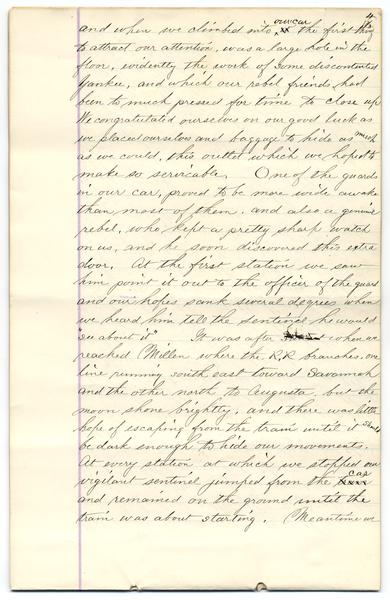 4
and when we climbed into our car the first thing
to attract our attention, was a large hole in the
floor, evidently the work of some discontented
Yankee, and which our rebel friends had
been to much pressed for time to close up
We congratulated ourselves on our good luck as
we placed ourselves and baggage to hide as much
as we could, this outlet which we hoped to
make so servicable. One of the guards
in our car, proved to be more wide awake
than most of them, and also a genuine
rebel, who kept a pretty sharp watch
on us, and he soon discovered this extra
door. At the first station we saw
him point it out to the officer of the guard
and our hopes sank several degrees when
we heard him tell the sentinel he would
"see about it" It was after when we
reached Millen where the R.R. branches, one
line running south east toward Savannah
and the other north to Augusta, but the
moon shone brightly, and there was little
hope of escaping from the train until it should
be dark enough to hide our movements.
At every station at which we stopped our
vigilant sentinel jumped from the car
and remained on the ground until the
train was about starting. Meantime we